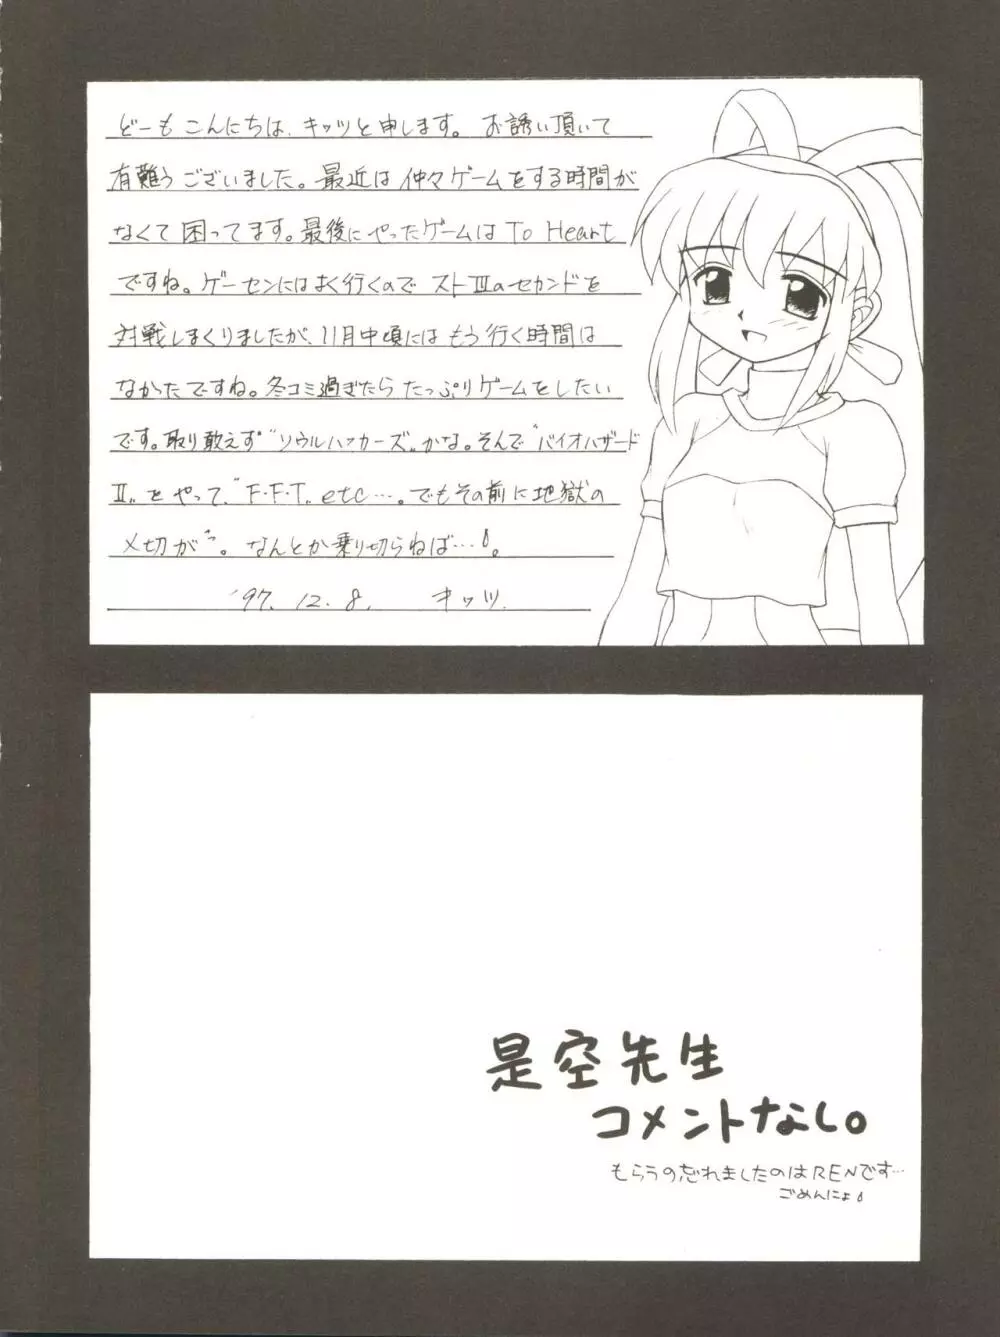 どーもこんにちは、キッツと申します。お誘い頂いて
有難うございました。最近は仲々ゲームをする時間が
なくて困ってます。最後にやったゲームはTo Heart
ですね。ゲーセンにはよく行くのでストⅢのセカンドを
対戦しまくりましたが、11月中頃にはもう行く時間は
なかったですね。冬コミ過ぎたらたっぷりゲームをしたい
です。取り敢えず"ソウルハッカーズ"かな。そんで"バイオハザード
Ⅱ"をやって、"F・F・T" etc…。でもその前に地獄の
〆切がっ。なんとか乗り切らねば…。
'97. 12. 8. キッツ
是空先生
コメントなし。
もらうの忘れましたのはRENです…
ごめんにょ